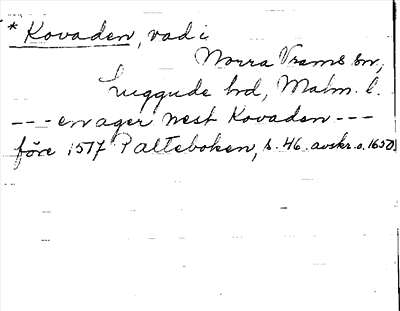 * Kovaden, vad i
Norra Vrams sn,
Luggude hd, Malm. l.
--- en ager nest Kovaden ---
före 1577 Palteboken, s. 46. avskr. o. 1650)